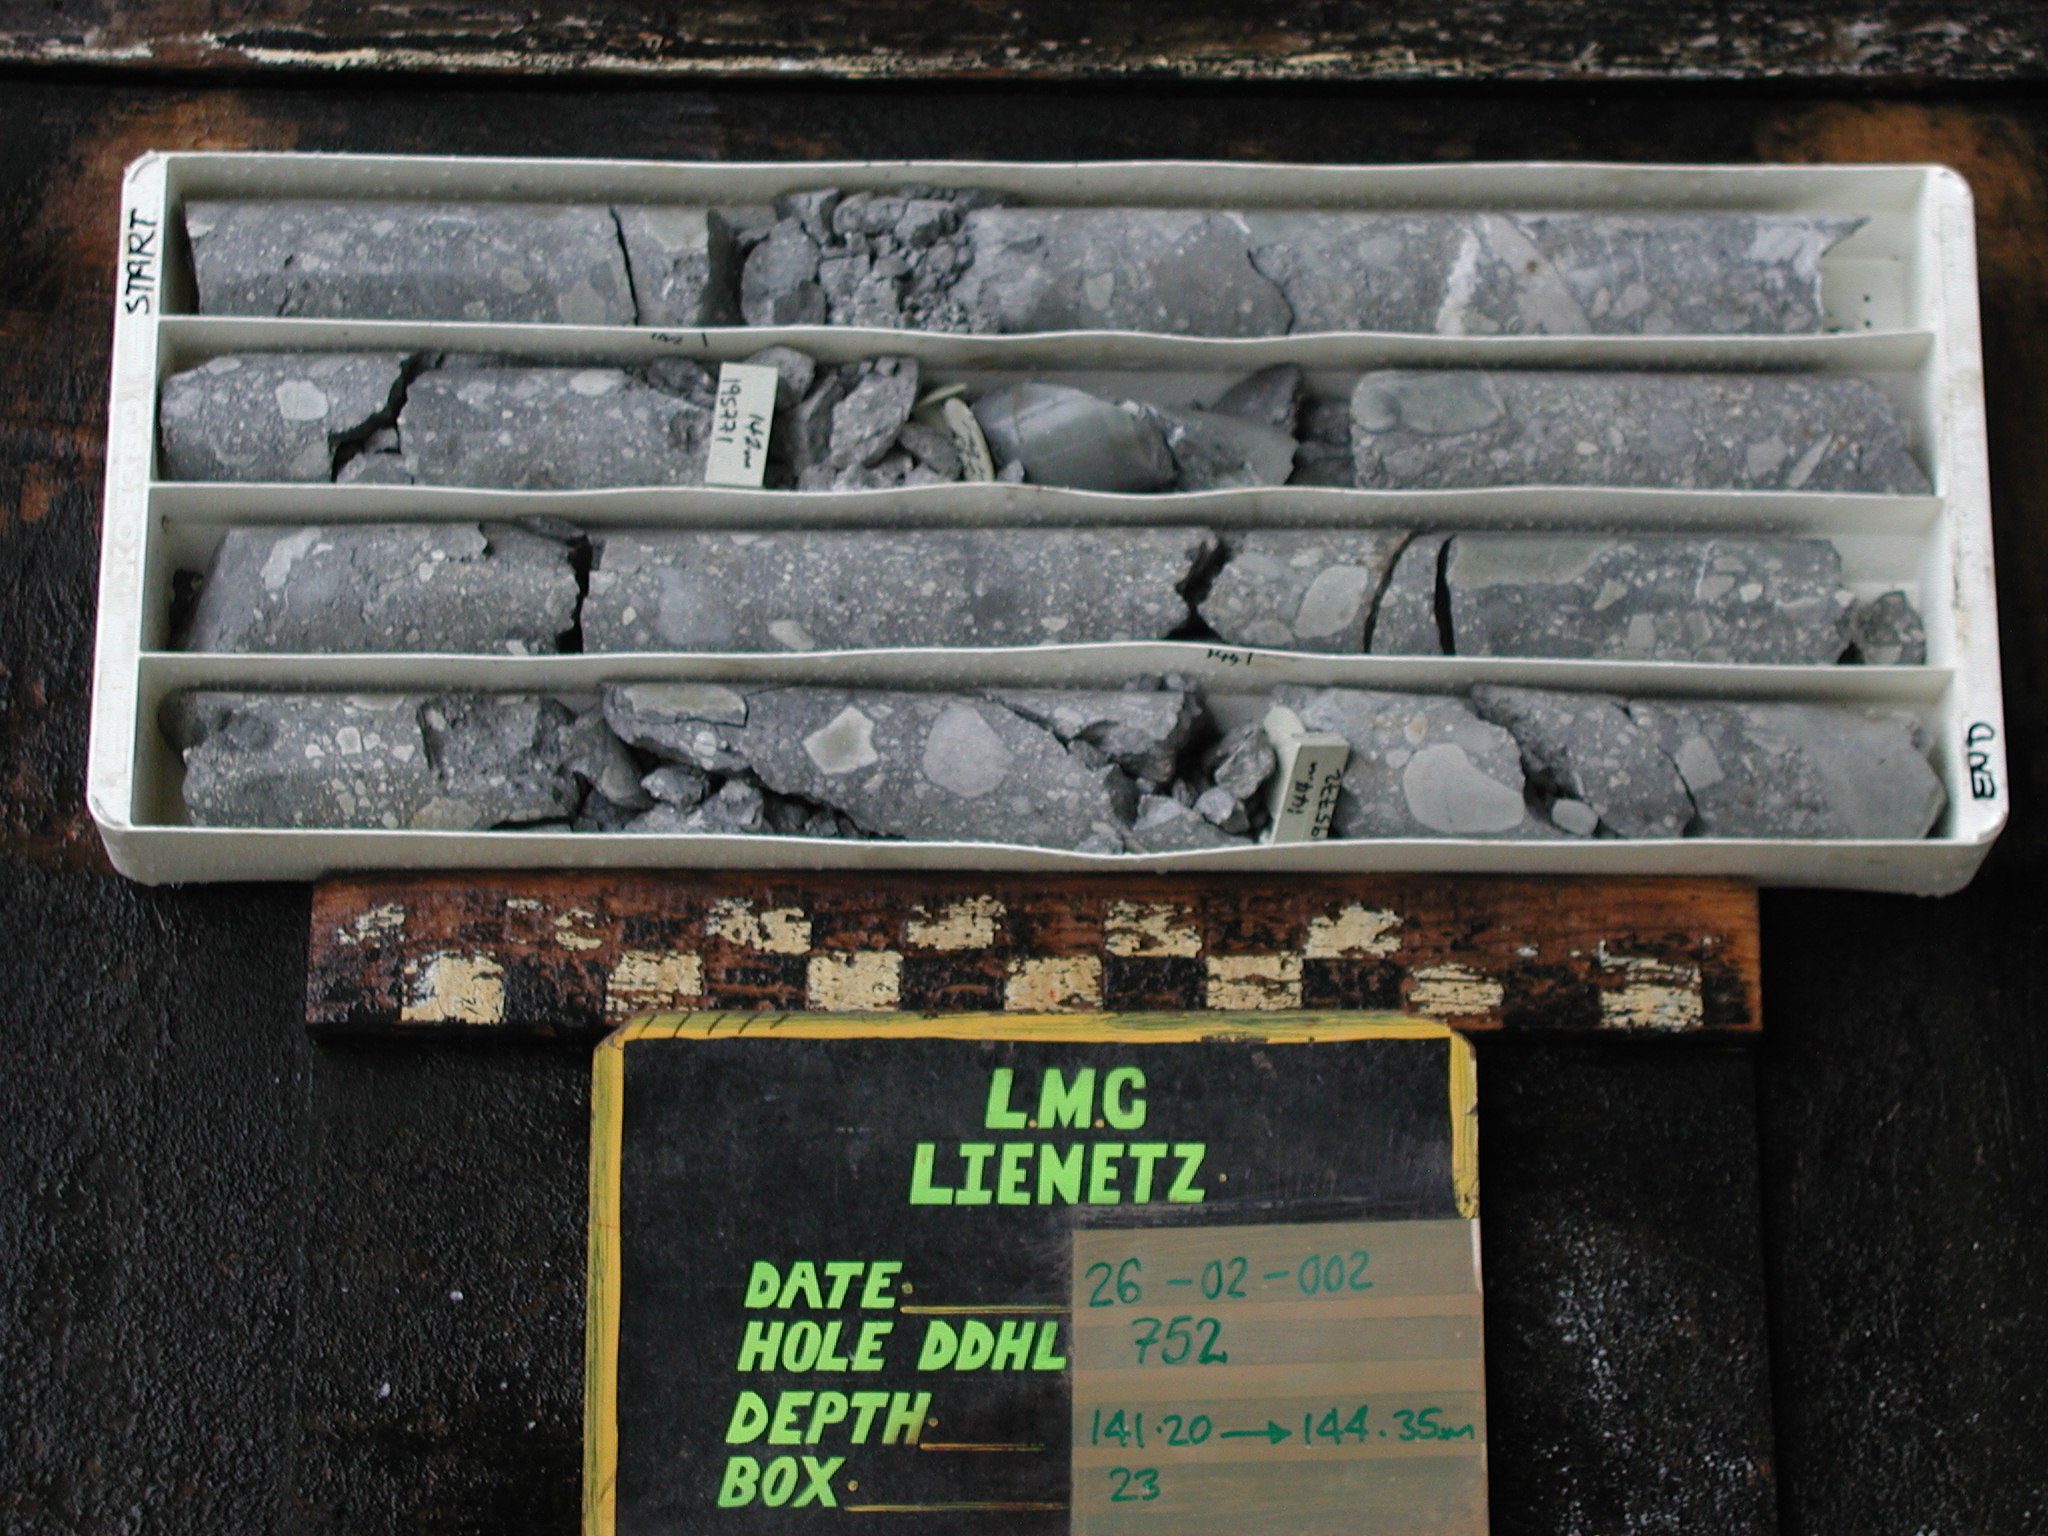 START
142m
195771
144m
95772
END
L.M.C
LIENETZ
DATE. 26-02-002
HOLE DDHL 752
DEPTH. 141.20 → 144.35m
BOX. 23